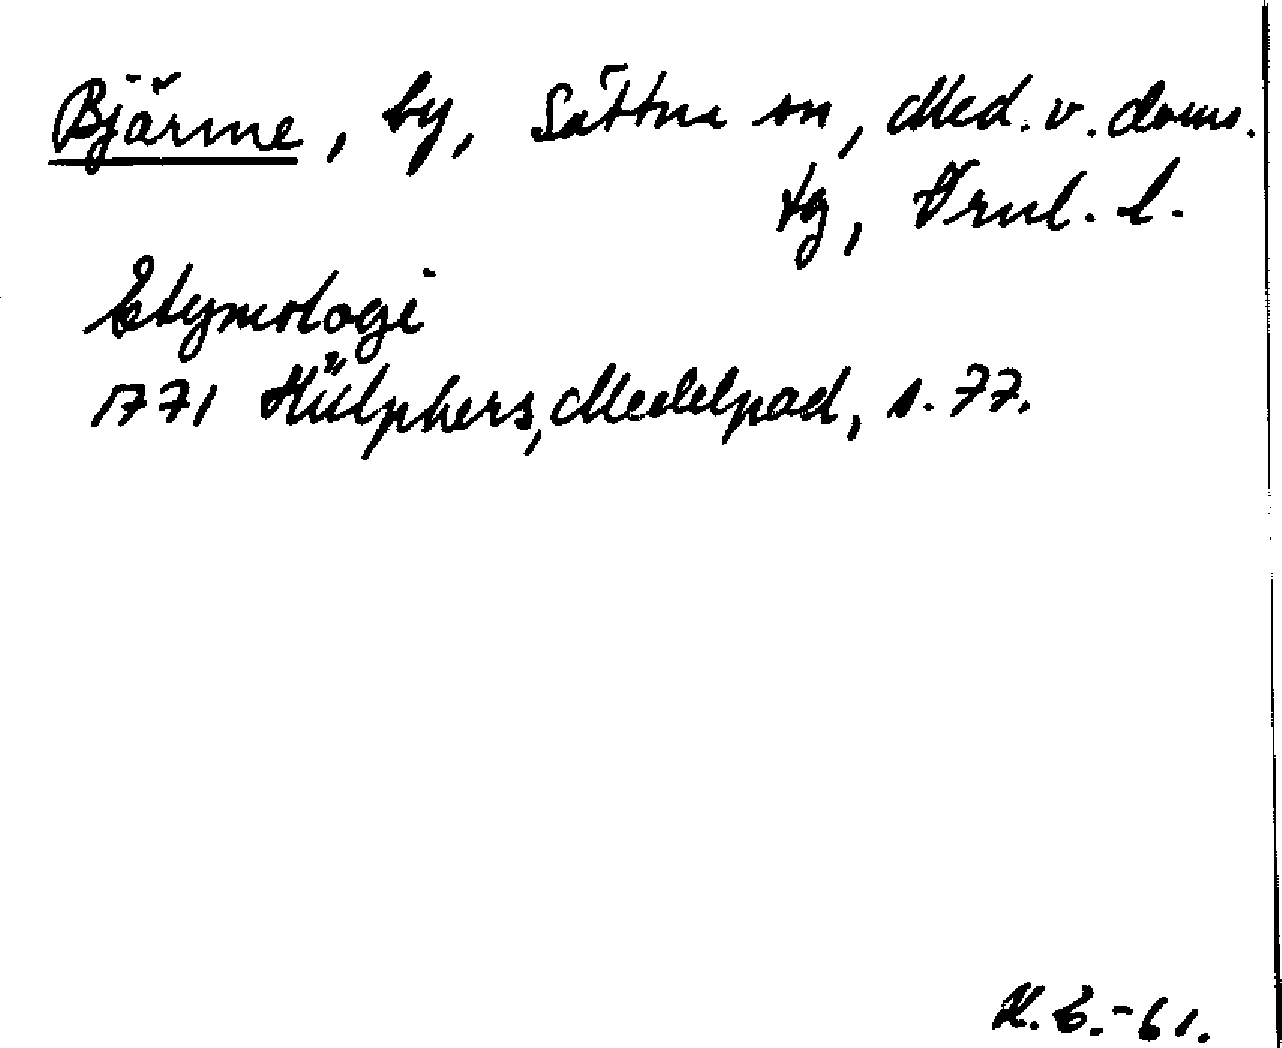 Bjärme, by, Sättna sn, Med. v. doms.
tg, Vrnl. l.
Etymologi
1771 Hülphers, Medelpad, s. 77.
K.E.-61.